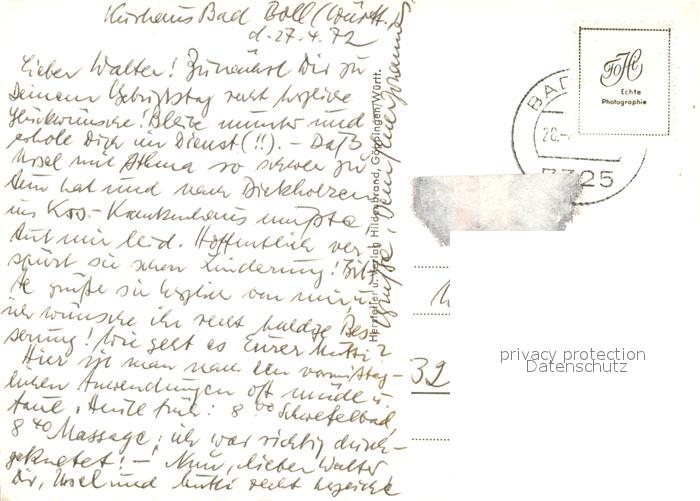 Kurhaus Bad Boll (Württ.)
d. 27.4.72
Lieber Walter! Zunächst Dir zu
Deinem Gebristag recht herzliche
Glückwünsche! Bleibe munter und
erhole Dich im Dienst (!!). – Daß
Ursel mit Asthma so schwer zu
tun hat und nach Diekholzen
ins Krs.-Krankenhaus mußte,
tut mir leid. Hoffentlich ver-
spürt sie schon Linderung! Bit-
te grüße sie herzlich von mir,
ich wünsche ihr recht baldige Bes-
serung! Wie geht es Eurer Mutti?
Hier ist man nach den vormittag-
lichen Anwendungen oft müde u.
faul. Heute früh: 8 00 Schwefelbad,
8 40 Massage; ich war richtig durch-
geknetet! – Nun, lieber Walter
Dir, Ursel und Mutti recht herzliche
Grüße, Dein
Hersteller u. Verlag Hildenbrand, Göppingen/Württ.
BAD
26.-
7325
Echte
Photographie
32
privacy protection
Datenschutz